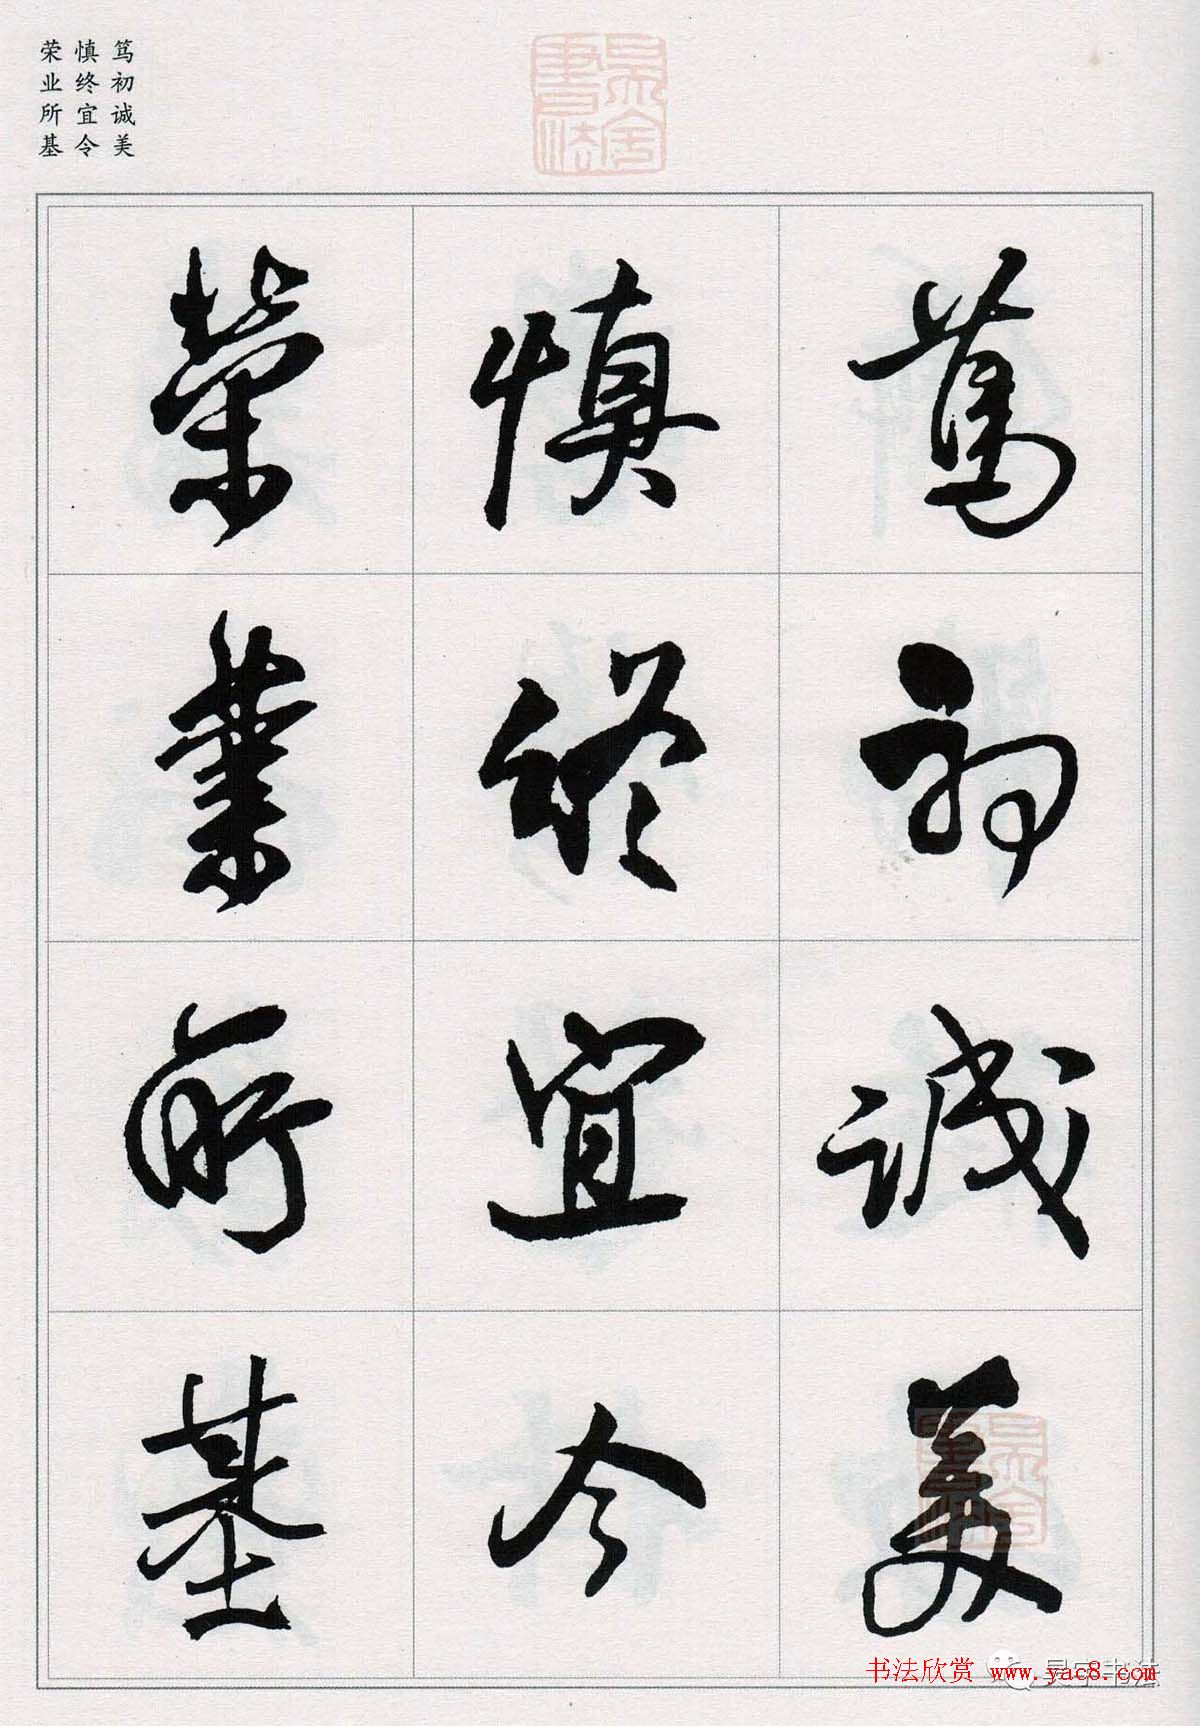 笃初诚美
慎终宜令
荣业所基
篤初誠美
慎終宜令
榮業所基
书法欣赏 www.yac8.com